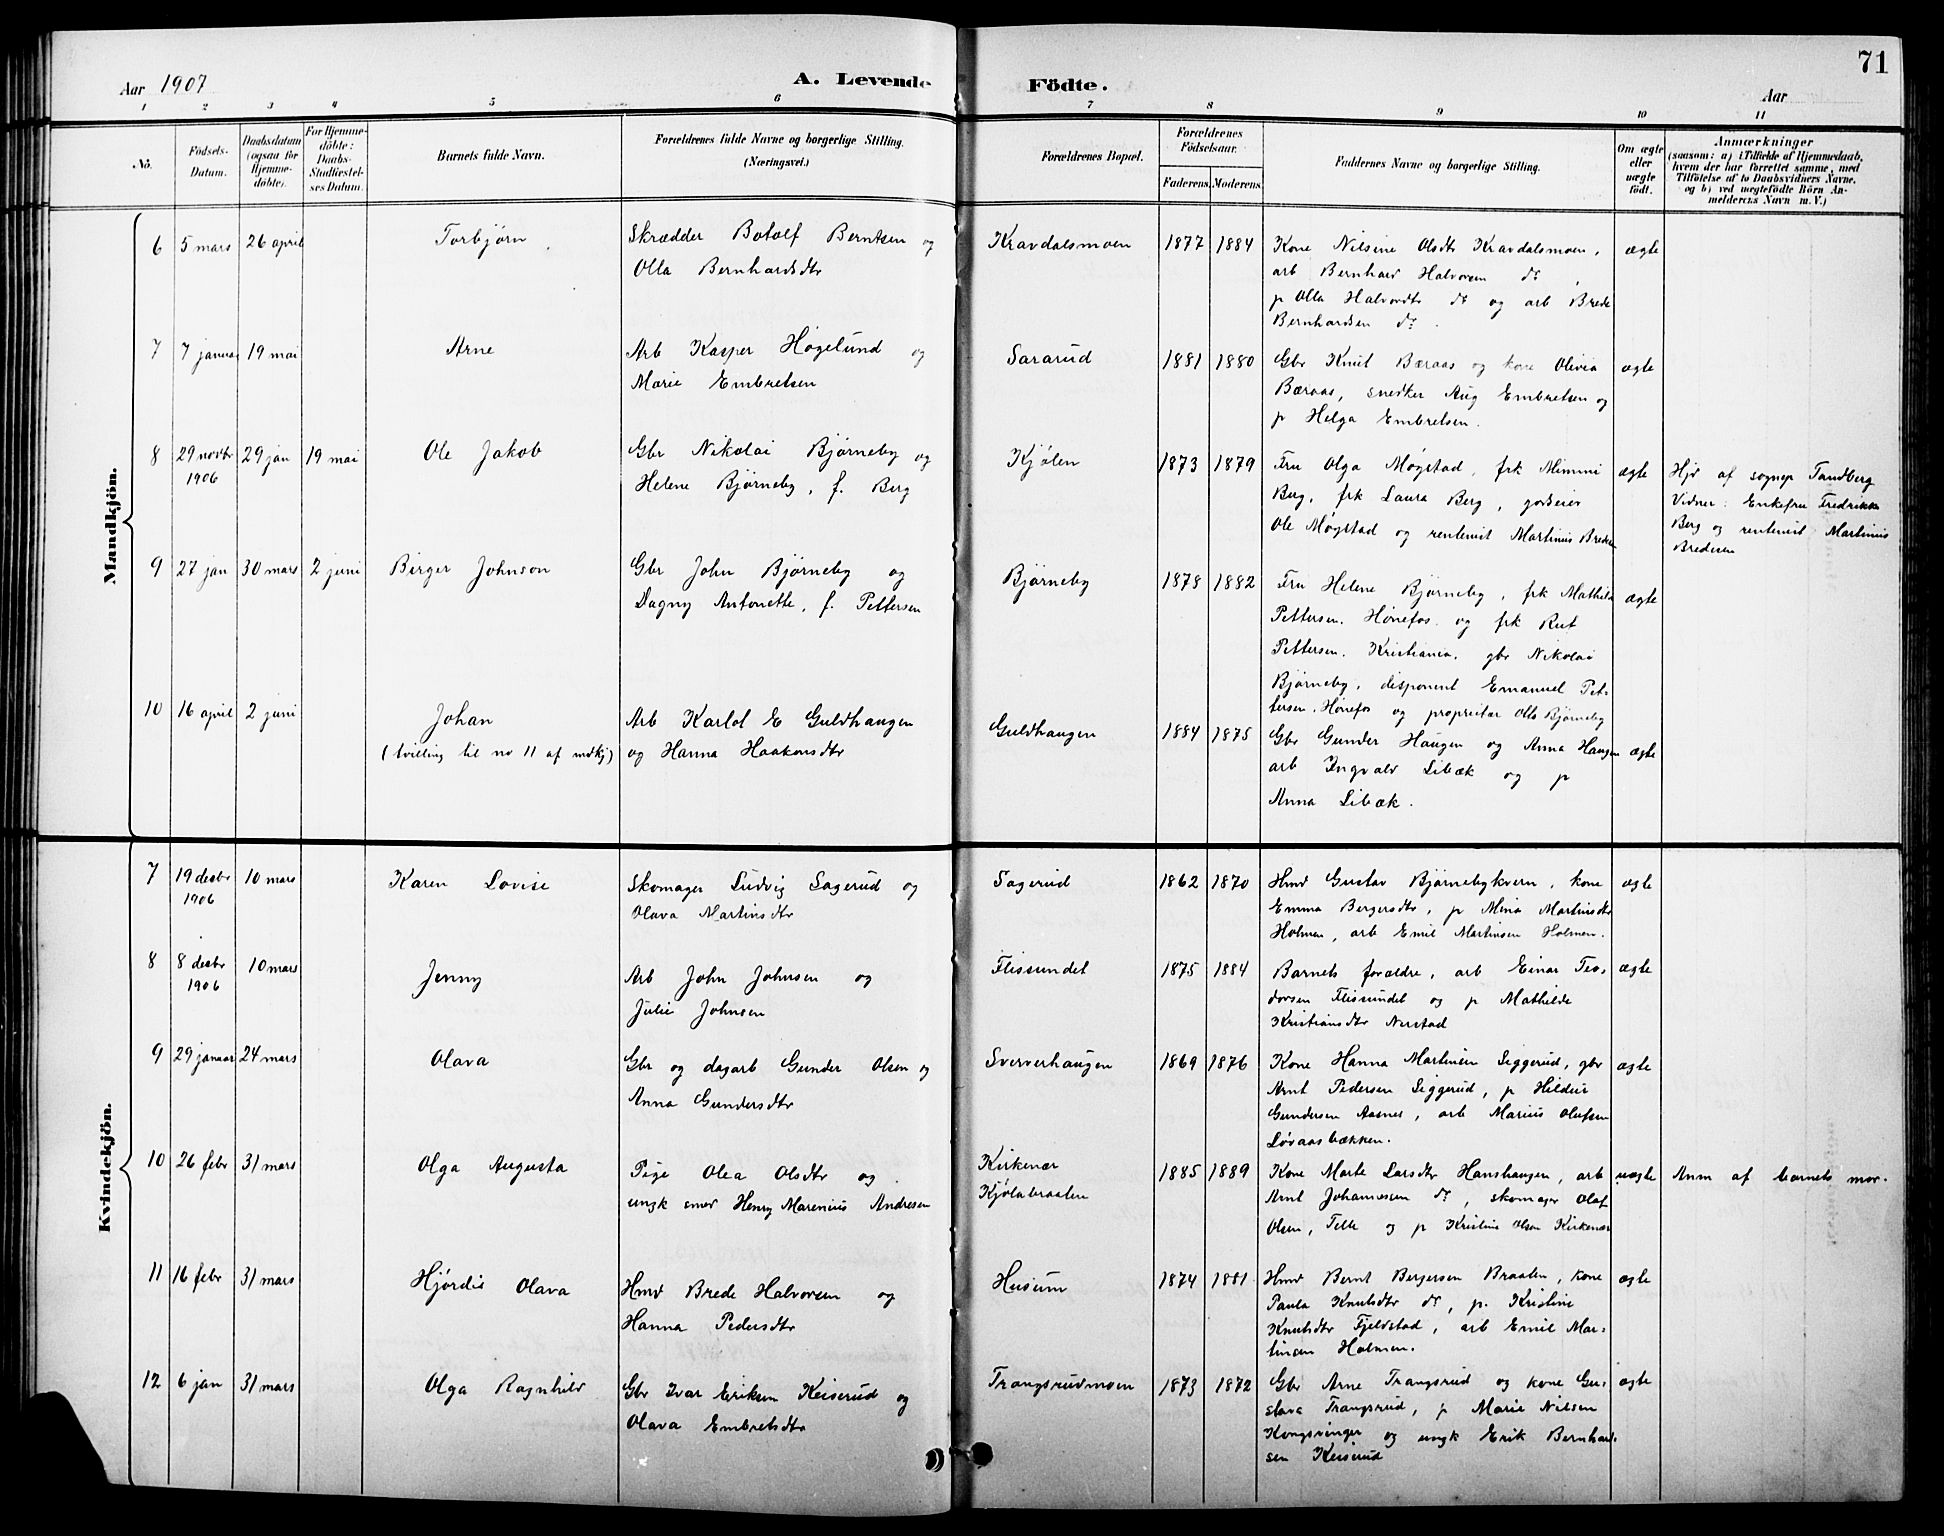 71
Aar 1907
A. Levende Födte.
Aar
1 2 3 4 5 6 7 8 9 10 11
No.
Födsels-Datum.
Daabsdatum (ogsaa for Hjemme-döbte).
For Hjemme-döbte: Daabs-Stadfæstel-ses Datum.
Barnets fulde Navn.
Forældrenes fulde Navne og borgerlige Stilling. (Næringsvei.)
Forældrenes Bopæl.
Forældrenes Födselsaar.
Faderens. Moderens.
Faddernes Navne og borgerlige Stilling.
Om ægte eller uægte födt.
Anmærkninger
(saasom: a) i Tilfælde af Hjemmedaab,
hvem der har forrettet samme, med
Tilföielse af to Daabsvidners Navne,
og b) ved uægtefödte Börn An-
melderens Navn m. V.)
Mandkjön.
6 5 mars 26 april Torbjørn Skrædder Botolf Berntsen og Kravdalsmoen 1877 1884 Kone Nilsine Olsdtr Kravdalsmoen, ægte
Olla Bernhardsdtr arb Bernhard Halvorsen do,
p Olla Halvordtr do og arb Brede
Bernhardsen do.
7 7 januar 19 mai Arne Arb Kasper Høgelund og Sararud 1881 1880 Gbr Knut Bæraas og kone Olivia ægte
Marie Embretsen Bæraas, snedker Aug Embretsen og
p Helga Embretsen.
8 29 novbr 29 jan 19 mai Ole Jakob Gbr Nikolai Bjørneby og Kjølen 1873 1879 Fru Olga Møystad, frk Mimmi ægte Hjd af sognep Tandberg
1906 Helene Bjørneby, f. Berg Berg, frk Laura Berg, godseier Vidner: Enkefru Fredrikke
Ole Møystad og rentenist Martinius Bredesen Berg og rentenist Martinius
Bredesen
9 27 jan 30 mars 2 juni Birger Johnson Gbr John Bjørneby og Bjørneby 1878 1882 Fru Helene Bjørneby, frk Mathilda ægte
Dagny Antonette, f. Pettersen Pettersen, Hønefos. og frk Rut
Pettersen, Kristiania, gbr Nikolai
Bjørneby, disponent Emanuel Pet-
tersen, Hønefos og proprietær Otto Bjørneby
10 16 april 2 juni Johan Arb Karlot E Guldhaugen Guldhaugen 1884 1875 Gbr Gunder Haugen og Anna Haugen ægte
(tvilling til no 11 af mdkj) og Hanna Haakonsdtr arb Ingvald Libæk og p
Anna Libæk.
Kvindekjön.
7 19 desbr 10 mars Karen Lovise Skomager Ludvig Sagerud og Sagerud 1862 1870 Hmd Gustav Bjørnebykvern, kone ægte
1906 Olava Martinsdtr Emma Bergersdtr, p Mina Martinsdtr
Holmen, arb Emil Martinsen Holmen.
8 8 desbr 10 mars Jenny Arb John Johnsen og Flissundet 1875 1884 Barnets forældre, arb Einar Teo- ægte
1906 Julie Johnsen dorsen Flissundet og p Mathilde
Kristiansdtr Nerstad
9 29 januar 24 mars Olava Gbr og dagarb Gunder Olsen og Sververhaugen 1869 1876 Kone Hanna Martinsen Siggerud, gbr ægte
Anna Gundersdtr Arnt Pedersen Siggerud, p Hildur
Gundersen Aasnes, arb Marius Olufsen
Løvaasbækken.
10 26 febr 31 mars Olga Augusta Pige Olea Olsdtr og Kirkenær 1885 1889 Kone Marte Larsdtr Hanshaugen, arb uægte Anm af barnets mor.
ungk smed Henry Marenius Andresen Kjølabraaten Arnt Johannesen do, skomager Olaf
Olsen, Telle og p Kristine Olsen Kirkenær
11 16 febr 31 mars Hjørdis Olava Hmd Brede Halvorsen og Husum 1874 1881 Hmd Bernt Bergersen Braaten, kone ægte
Hanna Pedersdtr Paula Knutsdtr do, p. Kristine
Knutsdtr Fjeldstad, arb Emil Mar-
tinsen Holmen.
12 6 jan 31 mars Olga Ragnhild Gbr Ivar Eriksen Keiserud og Trangsrudmoen 1873 1872 Gbr Arne Trangsrud og kone Gu- ægte
Olava Embretsdtr stava Trangsrud, p Marie Nilsen
Kongsvinger og ungk Erik Bernhard-
sen Keiserud